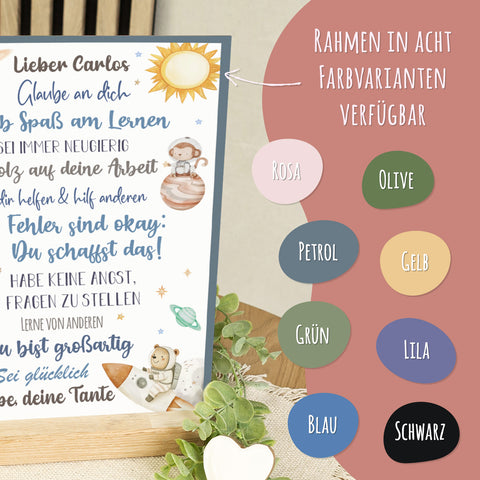 Lieber Carlos
Glaube an dich
b Spaß am Lernen
SEI IMMER NEUGIERIG
olz auf deine Arbeit
dir helfen & hilf anderen
Fehler sind okay:
Du schaffst das!
HABE KEINE ANGST,
FRAGEN ZU STELLEN
LERNE VON ANDEREN
u bist großartig
Sei glücklich
be, deine Tante
RAHMEN IN ACHT
FARBVARIANTEN
VERFÜGBAR
ROSA
OLIVE
PETROL
GELB
GRÜN
LILA
BLAU
SCHWARZ